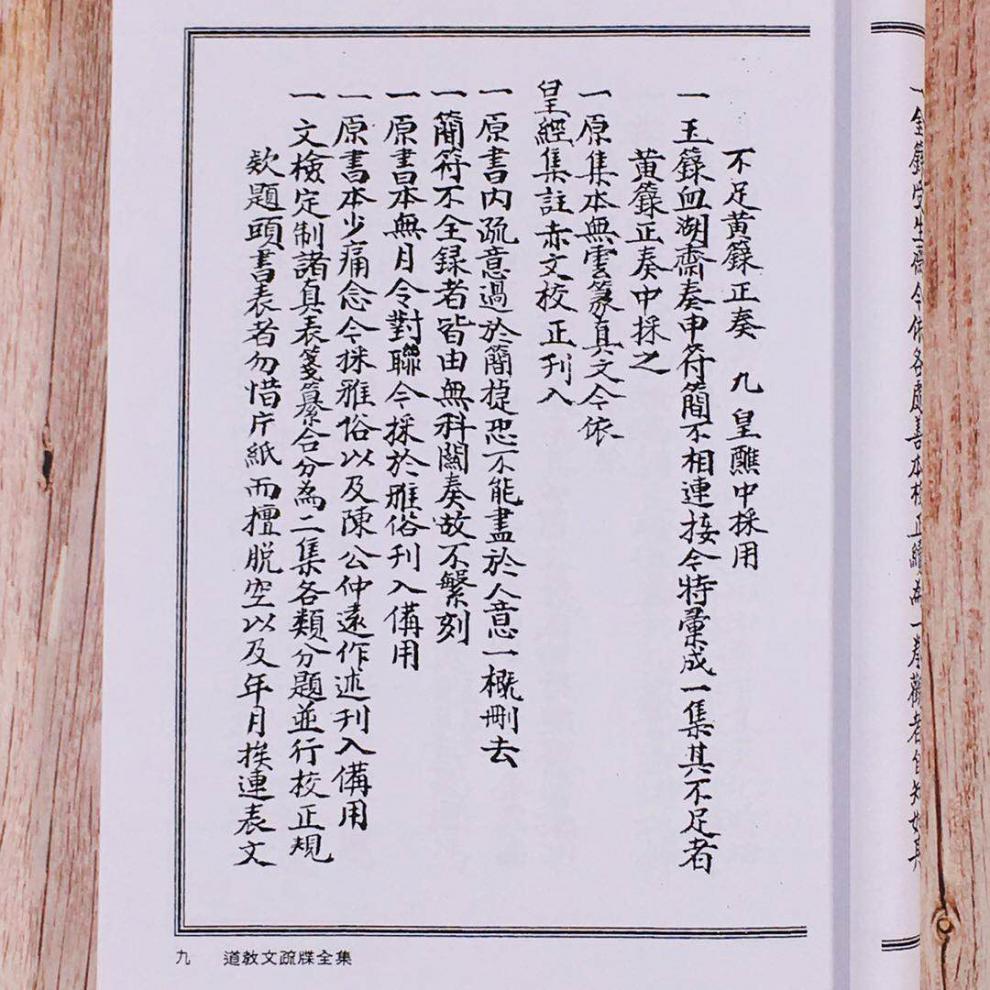 一金籙受生齋今依各處善本校正續為一本觀者自知如具
不足黃籙正奏 九皇醮中採用
一玉籙血湖齋奏申符簡不相連接今特彙成一集其不足者
黃籙正奏中採之
一原集本無雲篆真文今依
皇經集註赤文校正刊入
一原書内疏意過於簡㨗恐不能盡於人意一概刪去
一簡符不全録者皆由無科關奏故不繫刻
一原書本無月令對聯今採於雅俗刊入備用
一原書本少痛念今採雅俗以及陳公仲遠作述刊入備用
一文檢定制諸真表箋纂合分為二集各類分題並行校正規
欵題頭書表者勿惜片紙而擅脱空以及年月挨連表文
九 道教文疏牒全集